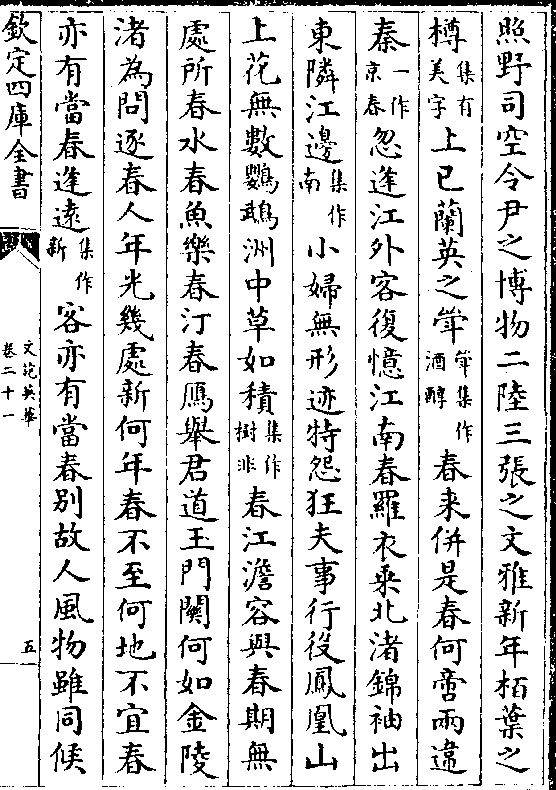 照野司空令尹之博物二陸三張之文雅新年栢葉之
樽集有美字上巳蘭英之斚斚集作酒醇春来併是春何啻兩違
秦一作京春忽逢江外客復憶江南春羅衣乗北渚錦袖出
東隣江邊集作南小婦無形迹特怨狂夫事行役鳳凰山
上花無數鸚鵡洲中草如積集作樹非春江澹容與春期無
處所春水春魚樂春汀春鴈舉君道王門闗何如金陵
渚為問逐春人年光幾處新何年春不至何地不宜春
亦有當春逢遠集作新客亦有當春别故人風物雖同候
欽定四庫全書
文苑英華
卷二十一
五